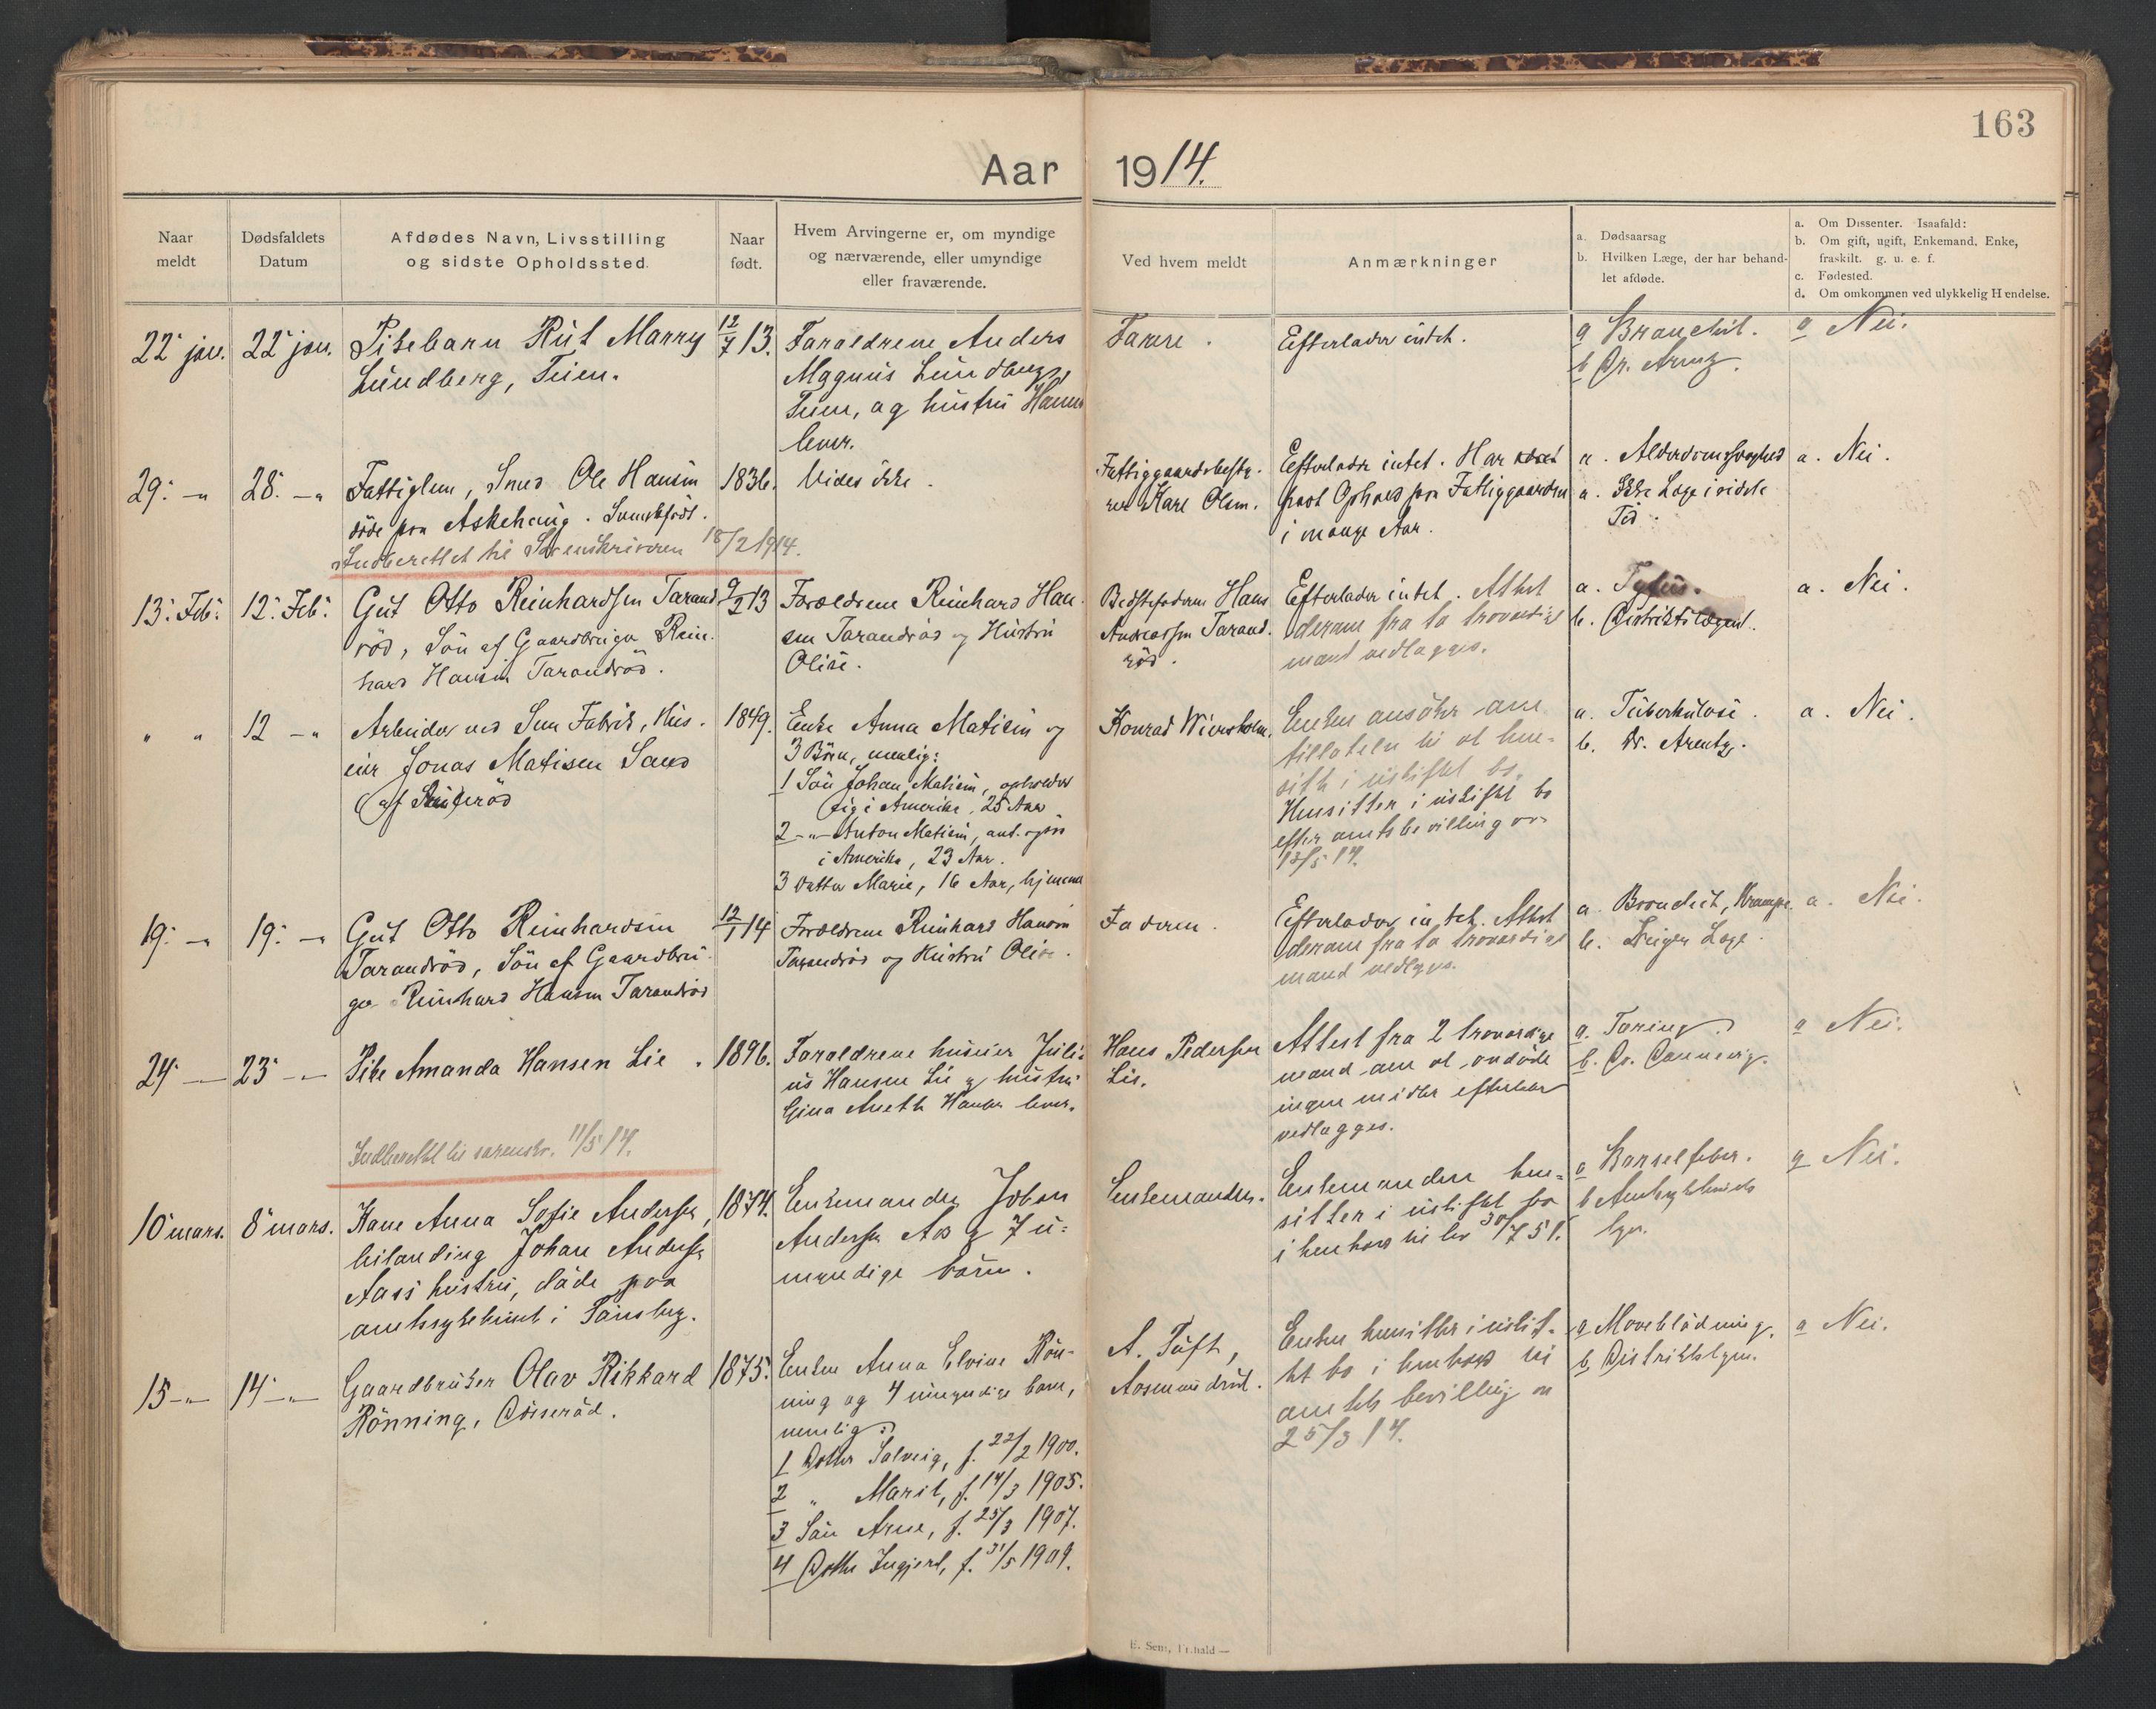 163
Aar 1914.
Naar meldt
Dødsfaldets Datum
Afdødes Navn, Livsstilling og sidste Opholdssted.
Naar født.
Hvem Arvingerne er, om myndige og nærværende, eller umyndige eller fraværende.
Ved hvem meldt
Anmærkninger
a. Dødsaarsag
b. Hvilken Læge, der har behandlet afdøde.
a. Om Dissenter. Isaafald:
b. Om gift, ugift, Enkemand, Enke, fraskilt. g. u. e. f.
c. Fødested.
d. Om omkommen ved ulykkelig Hændelse.
22 jan.
22 jan.
Pikebarn Rut Marry
Lundberg, Teien.
12/7 13.
Forældrene Anders
Magnus Lundberg,
Teien, og hustru Hanna
lever.
Faren.
Efterlader intet.
a Bronchit.
b Dr. Arentz.
a Nei.
29. -"
28. -"
Fattiglem, Smed Ole Hansen
døde paa Askehaug. Svenskfødt.
Indberettet til Sorenskriveren 18/2 1914.
1836.
Vides ikke.
Fattiggaardsbesty-
rer Karl Olsen.
Efterlader intet. Har
havt Ophold paa Fattiggaarden
i mange Aar.
a. Alderdomssvaghed
a. Ikke Læge i sidste
Tid.
a. Nei.
13. Feb.
12. Feb.
Gut Otto Reinhardsen Tarand-
rød, Søn af Gaardbruger Rein-
hard Hansen Tarandrød.
9/2 13
Forældrene Reinhard Han-
sen Tarandrød og Hustru
Olise.
Bedstefaderen Hans
Andreassen Tarand-
rød.
Efterlader intet. Attest
derom fra to troværdige
mænd vedlægges.
a. Tyfus.
b. Distriktslægen.
a. Nei.
" "
12 -"
Arbeider ved Sem Fabrik, Hus-
eier Jonas Matisen Sand
af
1849.
Enke Anna Matisen og
3 Børn, nemlig:
1 Søn Johan Matisen, opholder
sig i Amerika, 25 Aar
2 -"- Anton Matisen, ant. ogsaa
i Amerika, 23 Aar.
3 Datter Marie, 16 Aar, hjemme
Konrad Wiersholm.
Enken ansøker om
tilladelse til at hen-
sitte i uskiftet bo.
Hensitter i uskiftet bo
efter amtsbevilling av
13/5 14.
a. Tuberkulose.
b. Dr. Arentz.
a. Nei.
19. -"
19. -"
Gut Otto Reinhardsen
Tarandrød, Søn af Gaardbru-
ger Reinhard Hansen Tarandrød
12/1 14
Forældrene Reinhard Hansen
Tarandrød og Hustru Olise.
Faderen.
Efterlader intet. Attest
derom fra to troværdige
mænd vedlægges.
a. Bronchit, Krampe
b. Ingen Læge.
a. Nei.
24 -"-
23 -"-
Pike Amanda Hansen Lie.
1896.
Forældrene huseier Juli-
us Hansen Lie og hustru
Gina Aneth Hansen lever.
Hans Pedersen
Lie.
Attest fra 2 troværdige
mænd om at avdøde
ingen midler efterlater
vedlægges.
a. Tæring.
b. Dr. Dannevig.
a Nei.
Indberettet til sorenskr. 11/5 14.
10 mars.
8 mars.
Kone Anna Sofie Andersen,
Johan Andersen
Aass hustru, døde paa
amtssykehuset i Tønsberg.
1874.
Enkemanden Johan
Andersen Aas og 7 u-
myndige børn.
Enkemanden.
Enkemanden hen-
sitter i uskiftet bo
i henhold til lov 30/7 51.
a Barselfeber.
b Amtssykehusets
læge.
a Nei.
15 -"-
14 -"-
Gaardbruker Olav Rikkard
Rönning,
1875.
Enken Anna Elvine Rön-
ning og 4 umyndige barn,
nemlig:
1 Datter Solveig, f. 22/2 1900.
2 " Marit, f. 14/3 1905.
3 Søn Arne, f. 25/3 1907.
4 Datter Ingjerd, f. 31/5 1909.
A. Tufte,
Aasmundrød.
Enken hensitter i uskif-
tet bo i henhold til
amtets bevilling av
25/3 14.
a Maveblødning.
b Distriktslægen.
a Nei.